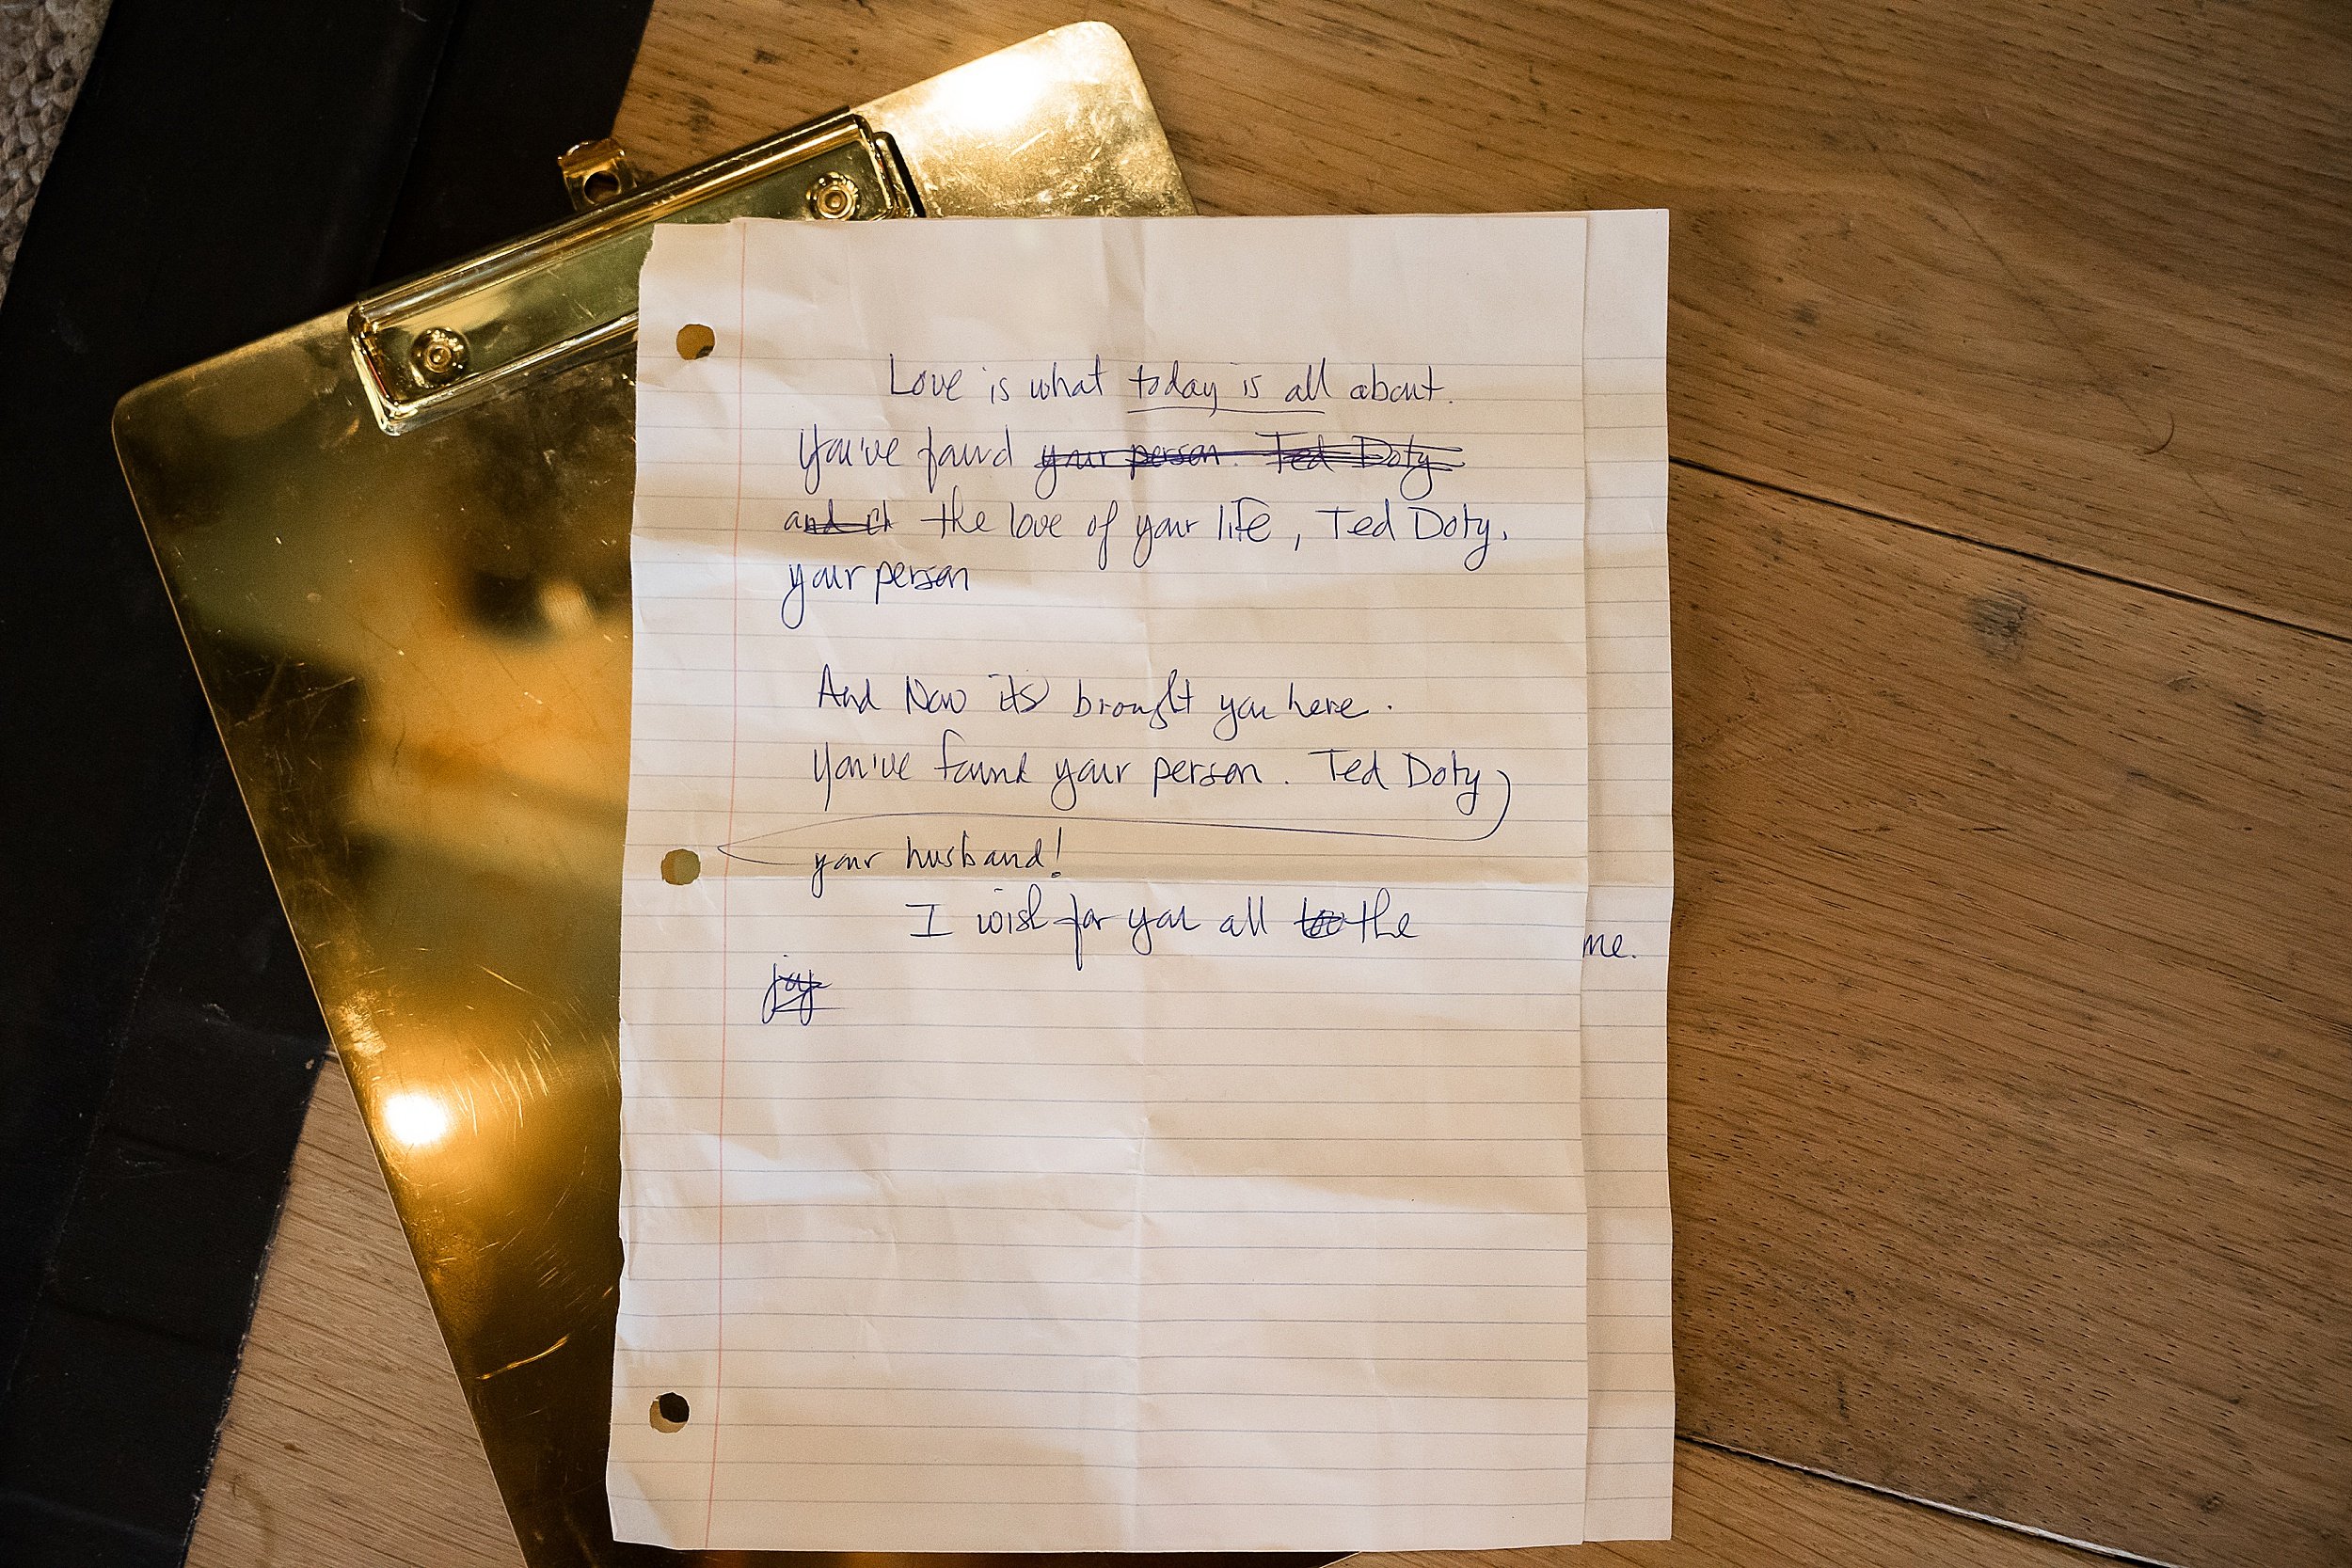 Love is what today is all about.
You've found your person. Ted Doty
and ch the love of your life, Ted Doty.
your person
And Now its brought you here.
You've found your person. Ted Doty
your husband!
I wish for you all to the
me.
joy